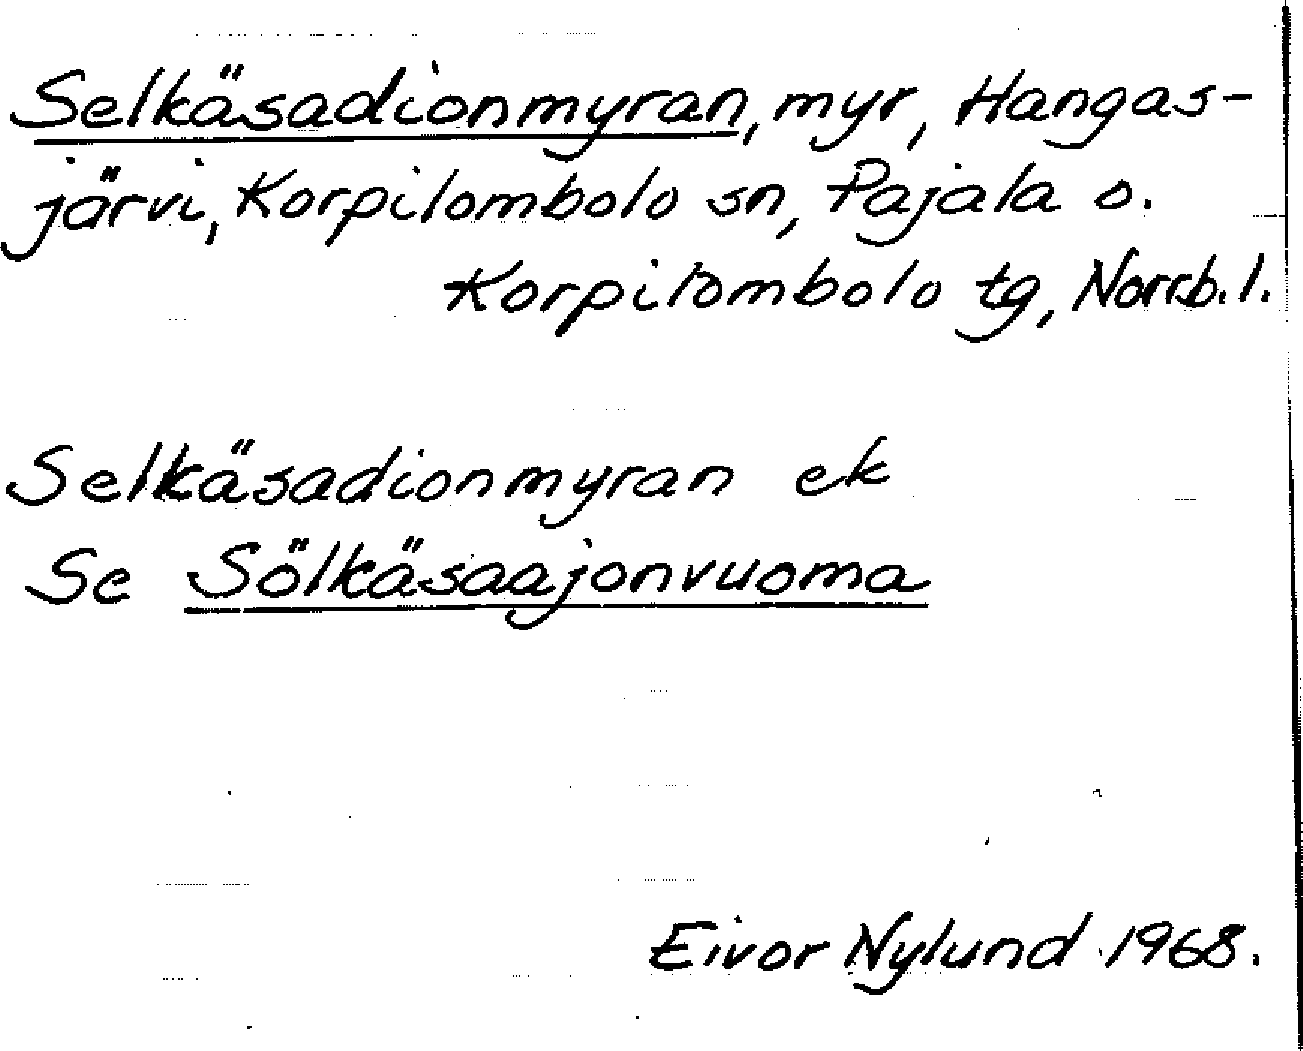 Selkäsadionmyran, myr, Hangas-
järvi, Korpilombolo sn, Pajala o.
Korpilombolo tg, Norrb.l.
Selkäsadionmyran ek
Se Sölkäsaajonvuoma
Eivor Nylund 1968.